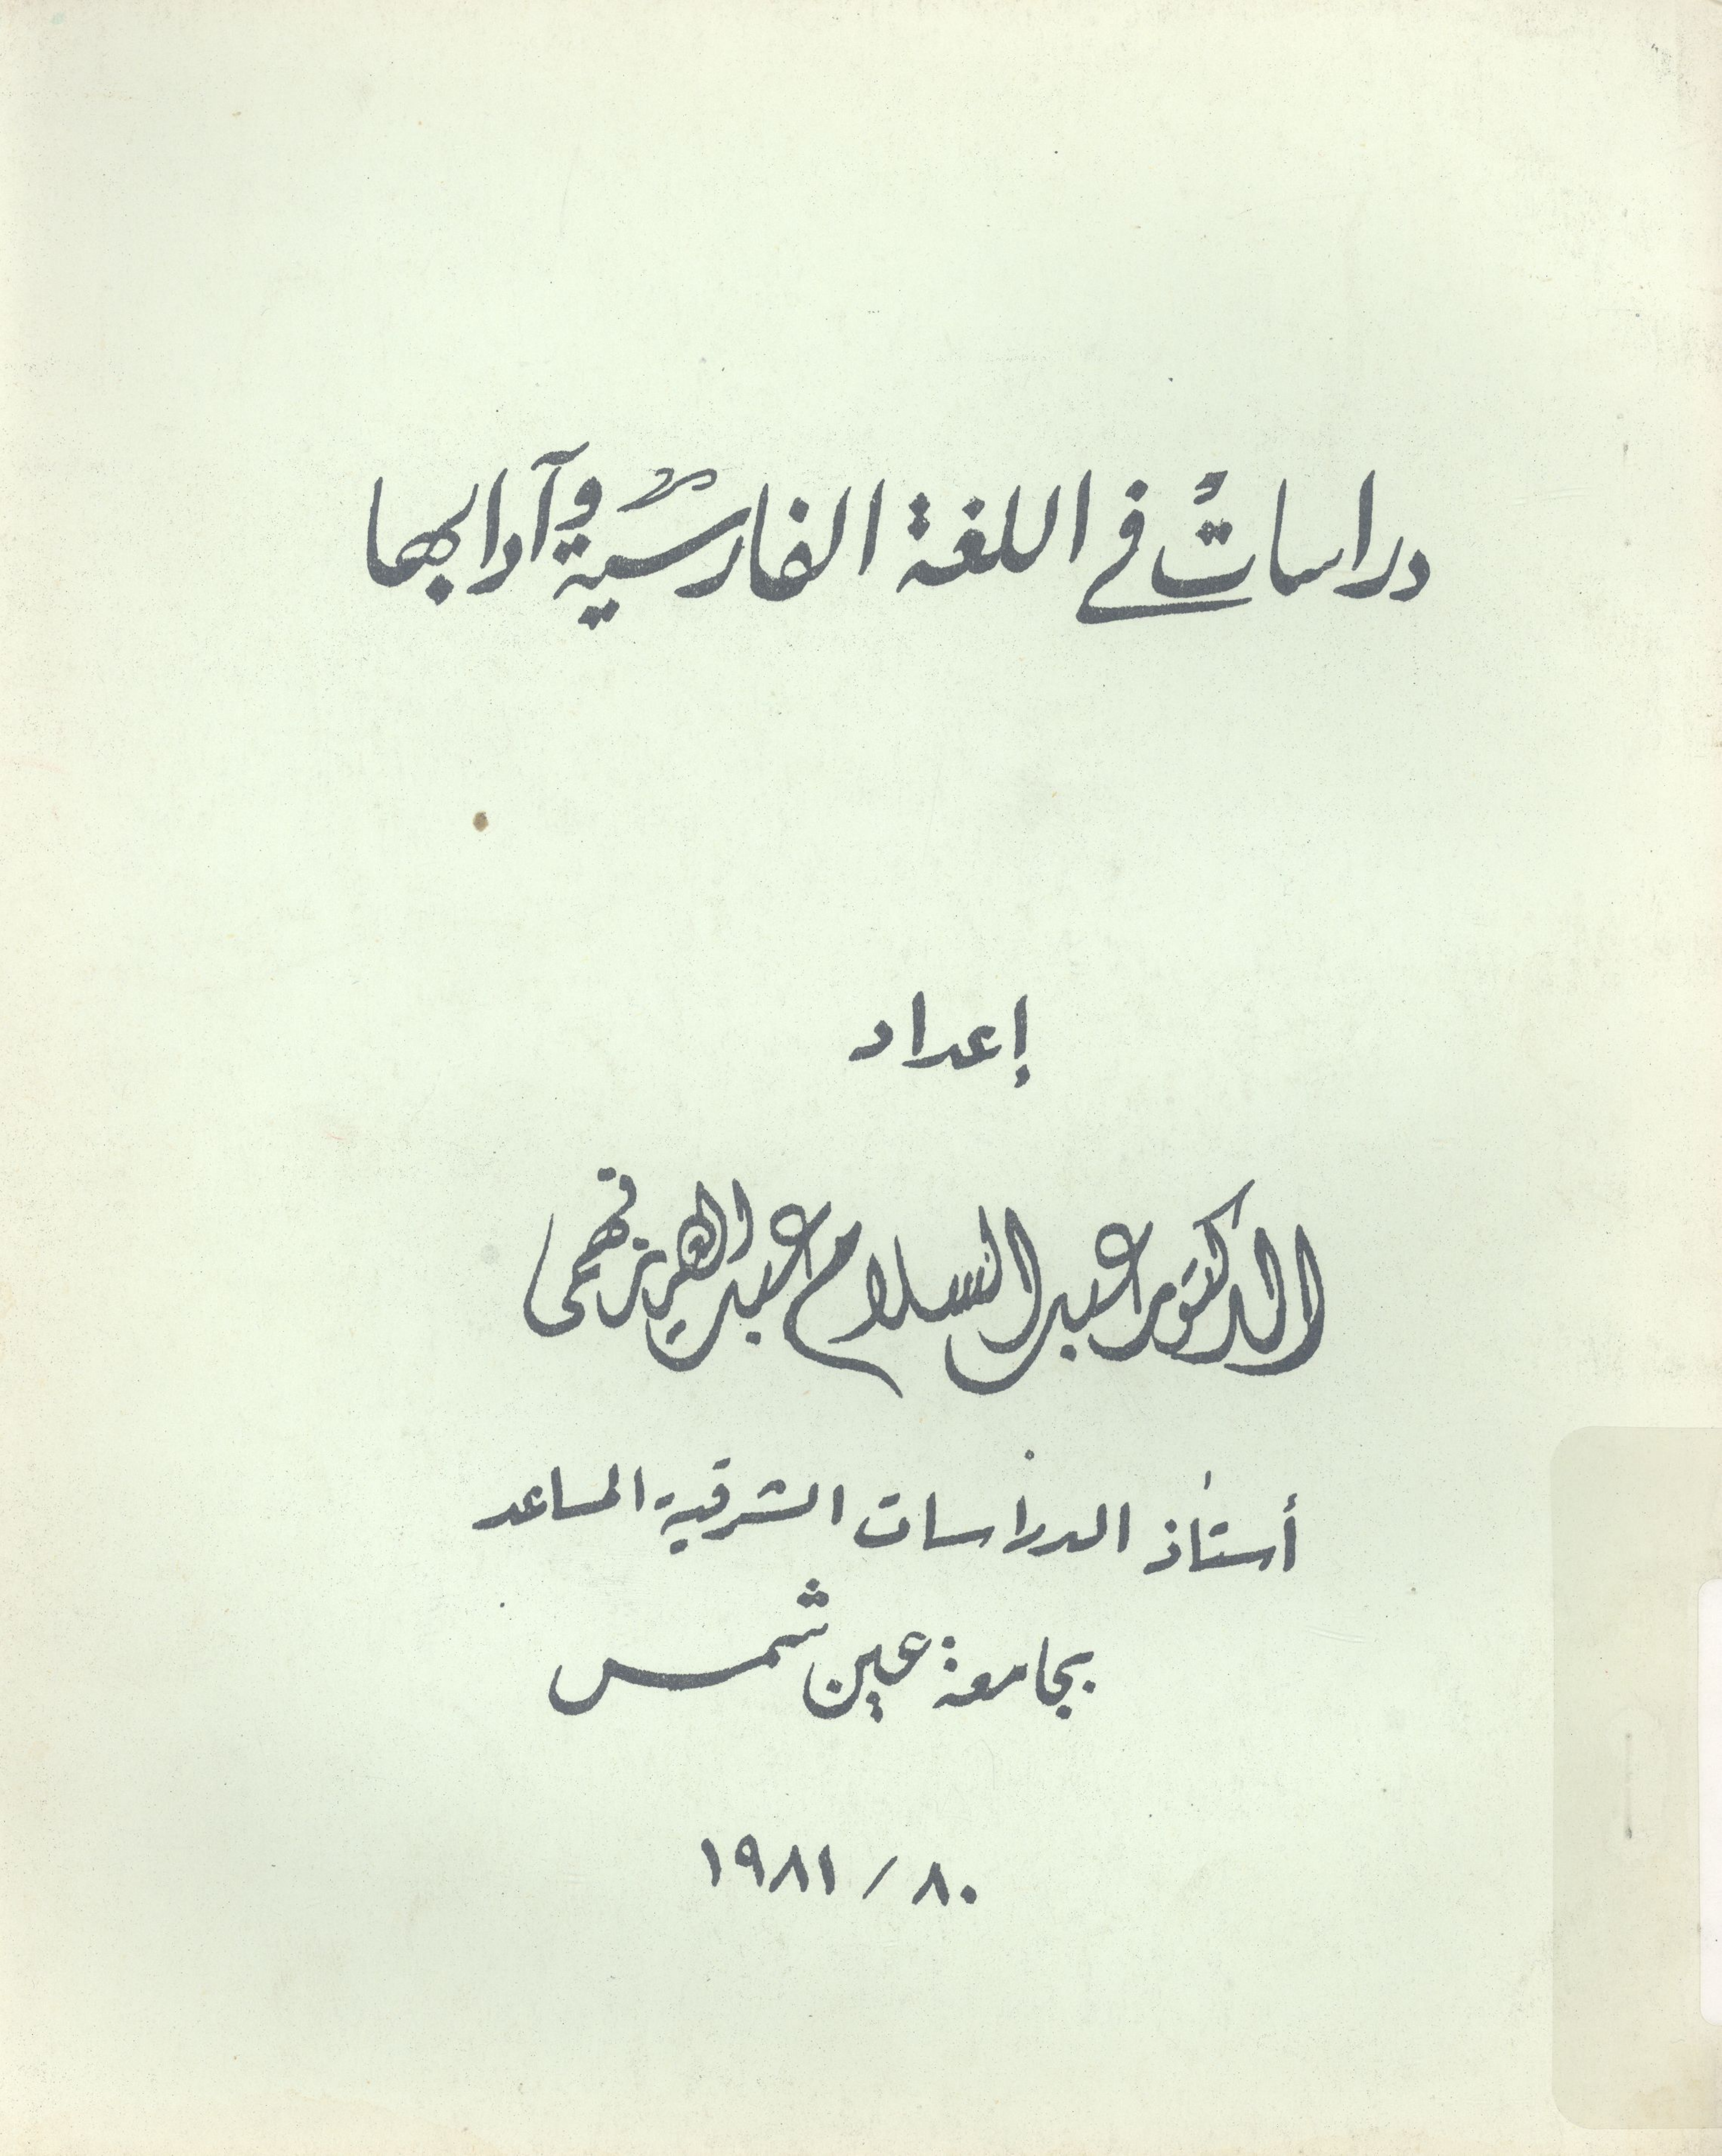 دراساتٌ في اللغة الفارسيّة وآدابها
إعداد
الدكتور عبد السلام عبد العزيز فهمى
أستاذ الدراسات الشرقية المساعد
بجامعة عين شمس
٨٠ / ١٩٨١